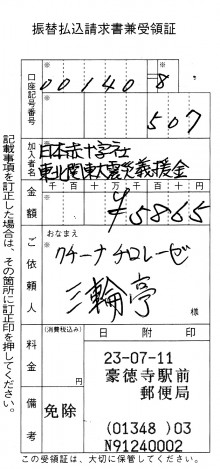 振替払込請求書兼受領証
口座記号番号
00140 8
507
加入者名
日本赤十字社
東北関東大震災義援金
金額
千 百 十 万 千 百 十 円
¥5865
ご依頼人
おなまえ
クチーナ チロレーゼ
三輪亭
料金
(消費税込み)
円
日 附 印
23-07-11
豪徳寺駅前
郵便局
備考
免除
(01348 )03
N91240002
この受領証は、大切に保管してください。
記載事項を訂正した場合は、その箇所に訂正印を押してください。